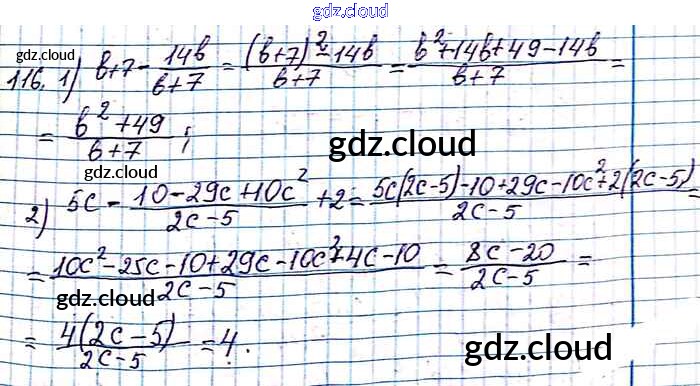 gdz.cloud
gdz.cloud
116. 1) b+7 - 14b/(b+7) = ((b+7)² - 14b)/(b+7) = (b²+14b+49-14b)/(b+7) =
= (b²+49)/(b+7) ;
gdz.cloud
gdz.cloud
2) 5c - (10-29c+10c²)/(2c-5) + 2 = (5c(2c-5)-10+29c-10c²+2(2c-5))/(2c-5) =
= (10c²-25c-10+29c-10c²+4c-10)/(2c-5) = (8c-20)/(2c-5) =
gdz.cloud
= 4(2c-5)/(2c-5) = 4.
gdz.cloud